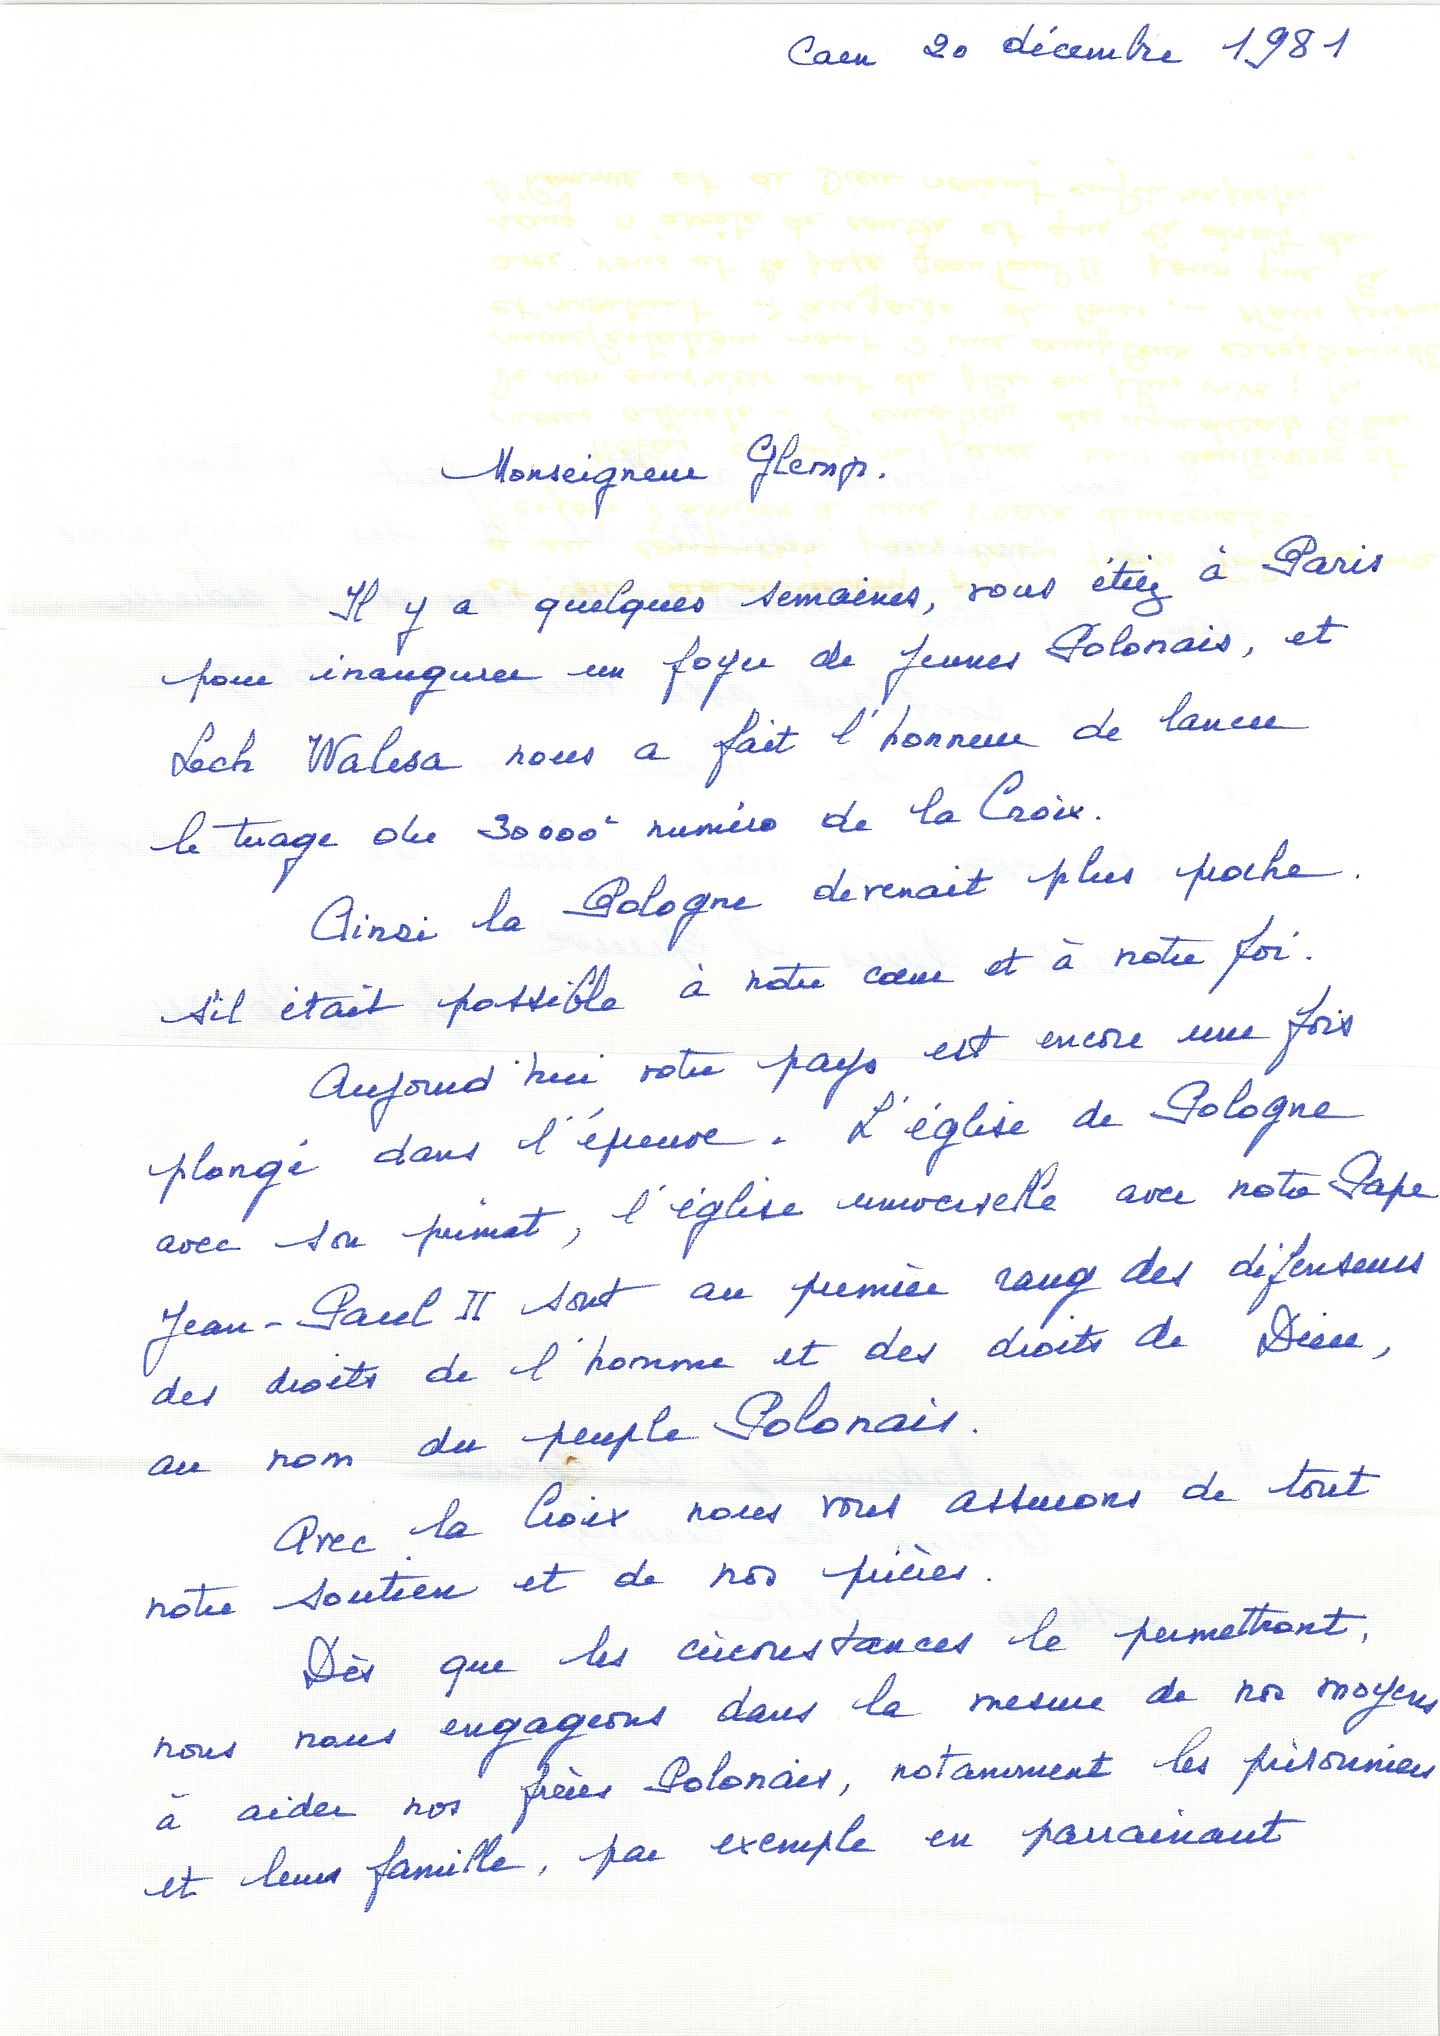 Caen 20 décembre 1981
Monseigneur Glemp.
Il y a quelques semaines, vous étiez à Paris
pour inaugurer un foyer de jeunes Polonais, et
Lech Walesa nous a fait l'honneur de lancer
le tirage du 30000è numéro de la Croix.
Ainsi la Pologne devenait plus proche.
s'il était possible à notre cœur et à notre foi.
Aujourd'hui votre pays est encore une fois
plongé dans l'épreuve. L'église de Pologne
avec son primat, l'église universelle avec notre Pape
Jean-Paul II sont au premier rang des défenseurs
des droits de l'homme et des droits de Dieu,
au nom du peuple Polonais.
Avec la Croix nous vous assurons de tout
notre soutien et de nos prières.
Dès que les circonstances le permettront,
nous nous engageons dans la mesure de nos moyens
à aider nos frères Polonais, notamment les prisonniers
et leurs famille, par exemple en parrainant